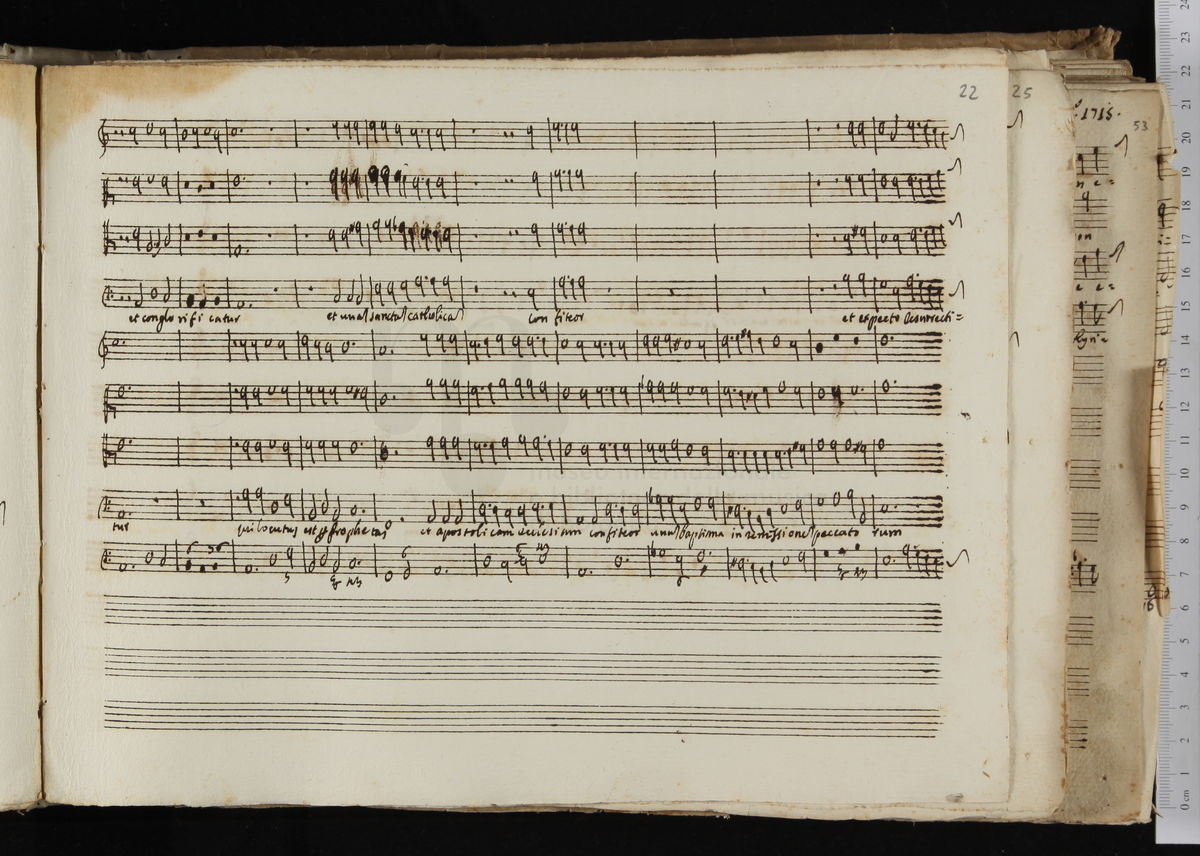 22
25
1715.
53
et conglo rifi catur et una sancta catholica con fiteor et expecto resurrecti=
tur qui locutus est per prophetas et apostolicam ecclesiam confiteor unu baptisma in remissione peccato rum
6
museo internazionale
24
23
22
21
20
19
18
17
16
15
14
13
12
11
10
9
8
7
6
5
4
3
2
1
0 cm